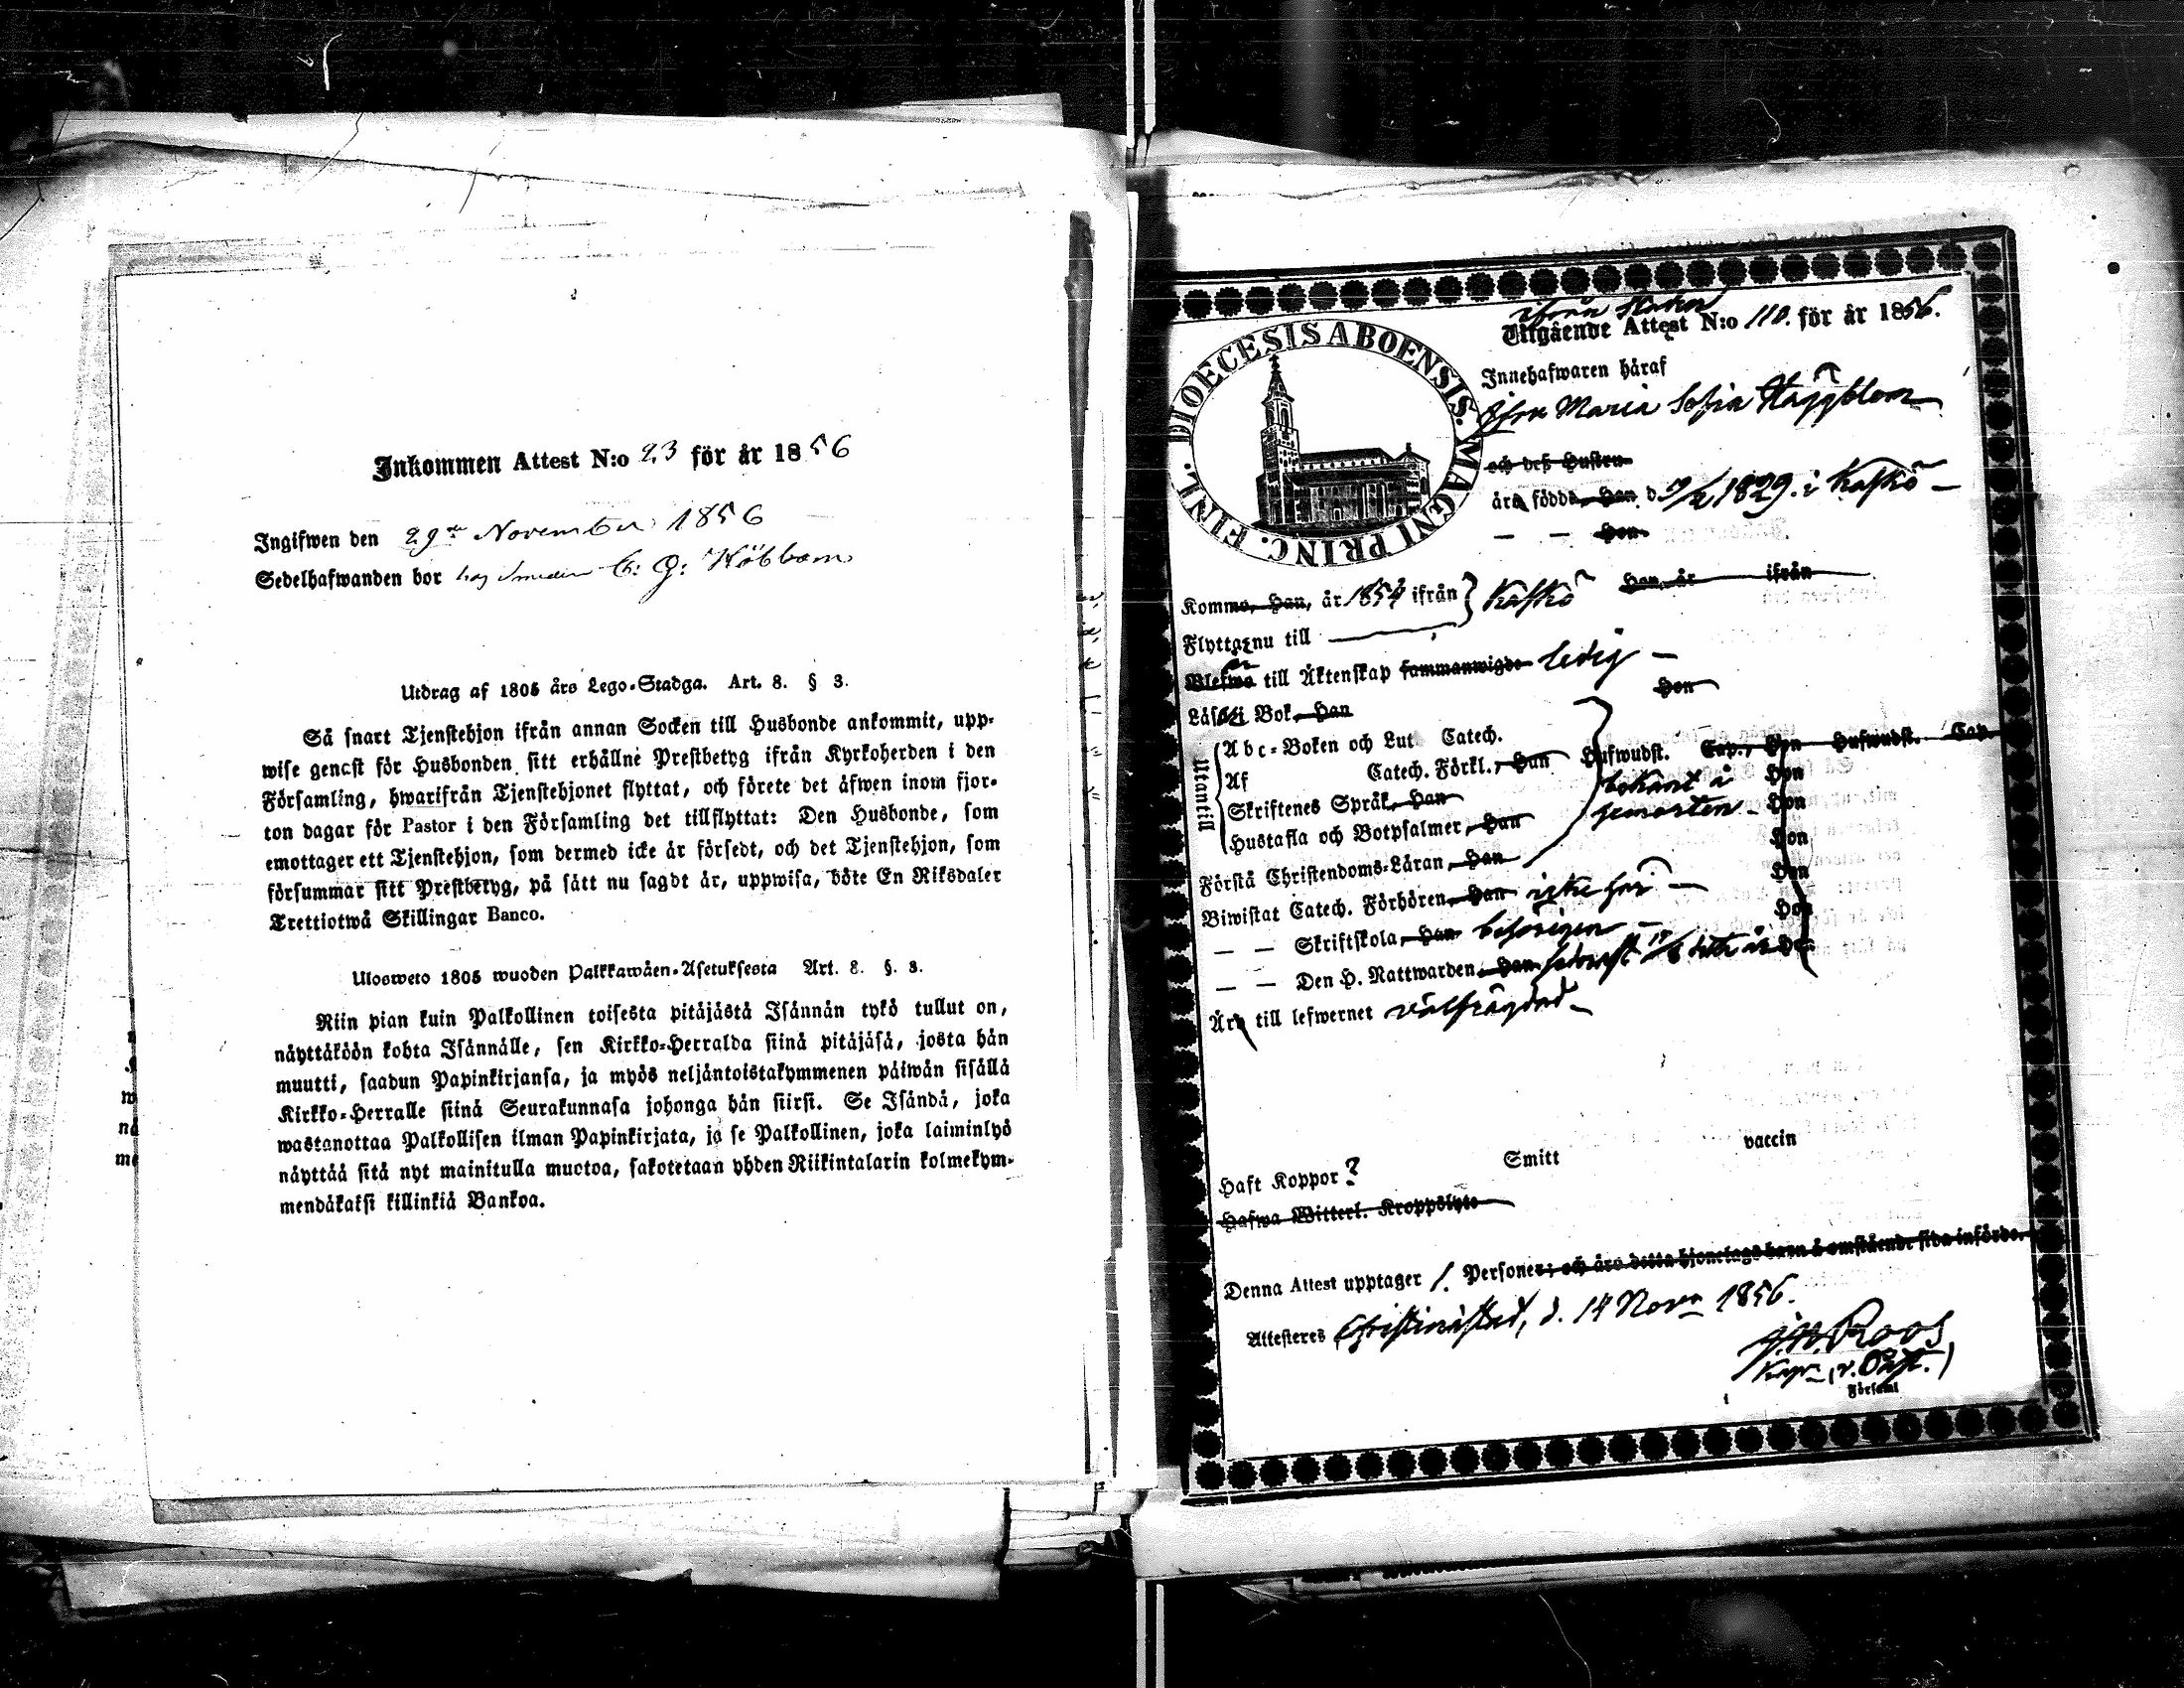 Inkommen Attest N:o 23 för år 1856
Ingifwen den 29de November 1856
Sedelhafwanden bor hos Smeden C: G:
Utdrag af 1805 års Lego-Stadga. Art. 8. § 3.
Så snart Tjenstehjon ifrån annan Socken till Husbonde ankommit, upp-
wise genast för Husbonden sitt erhållne Prestbetyg ifrån Kyrkoherden i den
Församling, hwarifrån Tjenstehjonet flyttat, och förete det äfwen inom fjor-
ton dagar för Pastor i den Församling det tillflyttat: Den Husbonde, som
emottager ett Tjenstehjon, som dermed icke är försedt, och det Tjenstehjon, som
försummar sitt Prestbetyg, på sätt nu sagdt är, uppwisa, böte En Riksdaler
Trettiotwå Skillingar Banco.
Ulosweto 1805 wuoden Palkkawäen-Asetuksesta Art. 8. §. 3.
Niin pian kuin Palkollinen toisesta pitäjästä Isännän tykö tullut on,
näyttäköön kohta Isännälle, sen Kirkko-Herralda siinä pitäjäsä, josta hän
muutti, saadun Papinkirjansa, ja myös neljäntoistakymmenen päiwän sisällä
Kirkko-Herralle siinä Seurakunnasa johonga hän siirsi. Se Isändä, joka
wastanottaa Palkollisen ilman Papinkirjata, ja se Palkollinen, joka laiminlyö
näyttää sitä nyt mainitulla muotoa, sakotetaan yhden Riikintalarin kolmekym-
mendäkaksi killinkiä Bankoa.
DIOECESIS ABOENSIS. MAGNI PRINC. FINL.
ifrån Staden
Utgående Attest N:o 110. för år 1856.
Innehafwaren häraf
Maria Sofia Häggblom
och deß Hustru
äro födde, Han d. 7/2 1829. i Kaskö
— — Hon
Komme, Han, år 1854 ifrån Kaskö Han, år ifrån
Flytta nu till
är
Blefwo till Äktenskap sammanwigde ledig —
Hon
Läsa i Bok, Han
Utantill
Abc-Boken och Lut. Catech.
Af Catech. Förkl., Han Hufwudst. Cap., Hon Hufwudst. Cap.
Skriftenes Språk, Han Hon
Hustafla och Botpsalmer, Han Hon
bekant å
senorten
Förstå Christendoms-Läran, Han Hon
Biwistat Catech. Förhören, Han icke här — Hon
— — Skriftskola, Han behörigen — Hon
— — Den H. Nattwarden, Han sednast 17/8 detta år Hon
Äro till lefwernet välfrägdad —
Haft Koppor ? Smitt vaccin
Hafwa Witterl. Kroppslyte
Denna Attest upptager 1. Personer; och äro detta hjonelags barn å omstående sida införde.
Attesteres Christinestad, d. 14 Nov. 1856.
Roos
Kap. (v. Past.)
Församl